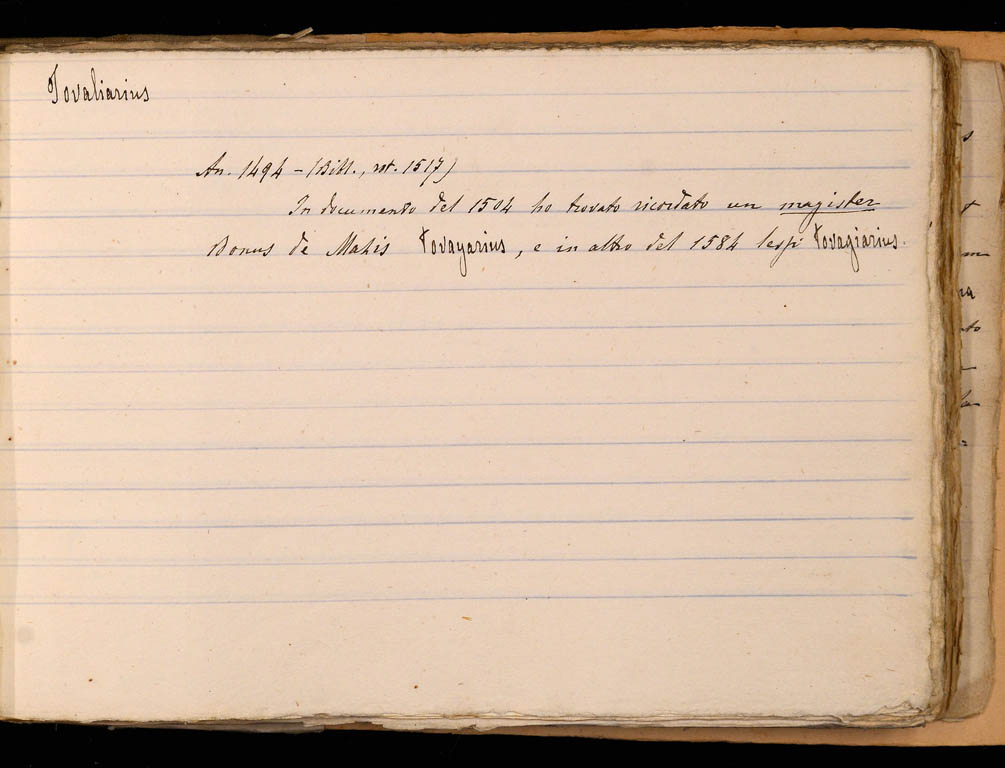 Tovaliarius
An. 1494 - (Bibl., rot. 1517)
In documento del 1504 ho trovato ricordato un magister
Bonus de Mahis tovayarius, e in altro del 1584 lessi tovagiarius.